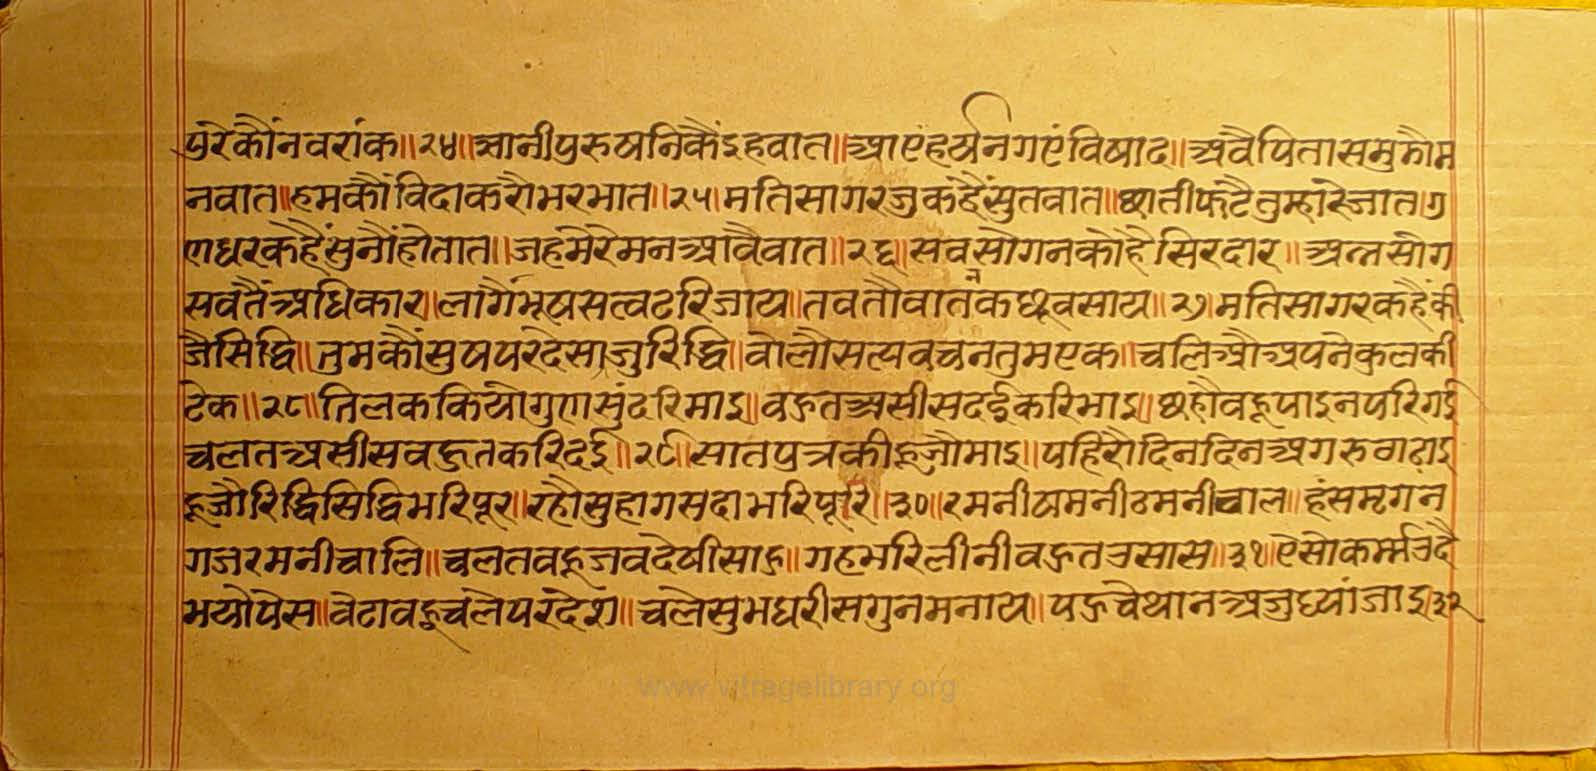 पुरेकौंनवरांक॥२४॥ग्यानीपुरुषनिकैंइहवात॥आएंहर्षनगएंविषाद॥अवैपितासमुझौम
नवात॥हमकौंविदाकरौभरभात॥२५॥मतिसागरजुकहैंसुतवात॥छातीफटैतुम्हारेजात॥गु
णधरकहैंसुनौंहोतात॥जहमेरेमनआवैवात॥२६॥सवसोगनकोहैसिरदार॥अन्नसोग
सवतैंअधिकार॥लागैंभूषसत्वटरिजाय॥तवतौवातनकछूवसाय॥२७॥मतिसागरकहैंकी
जैसिद्धि॥तुमकौंसुषपरदेसाजुरिद्धि॥वोलौसत्यवचनतुमएक॥चलिऔअपनेकुलकी
टेक॥२८॥तिलककियोगुणसुंदरिमाइ॥वहुतअसीसदईकरिभाइ॥छहौवहूपाइनपरिगई
चलतअसीसवहुतकरिदई॥२९॥सातपुत्रकीहूजोमाइ॥पहिरौदिनदिनअगरुवाढाइ
हूजौरिद्धिसिद्धिभरिपूर॥रहौसुहागसदाभरिपूरि॥३०॥रमनीठामनीठमनीचाल॥हंसमृगन
गजरमनीचालि॥चलतवहूजवदेषीसाहु॥गहभरिलीनीवहुतउसास॥३१॥ऐसोकर्म्मउदै
भयोपेस॥वेटावहुचलेपरदेश॥चलेसुभघरीसगुनमनाय॥पहुचेथानअजुध्यांजाइ॥३२
www.vitragelibrary.org